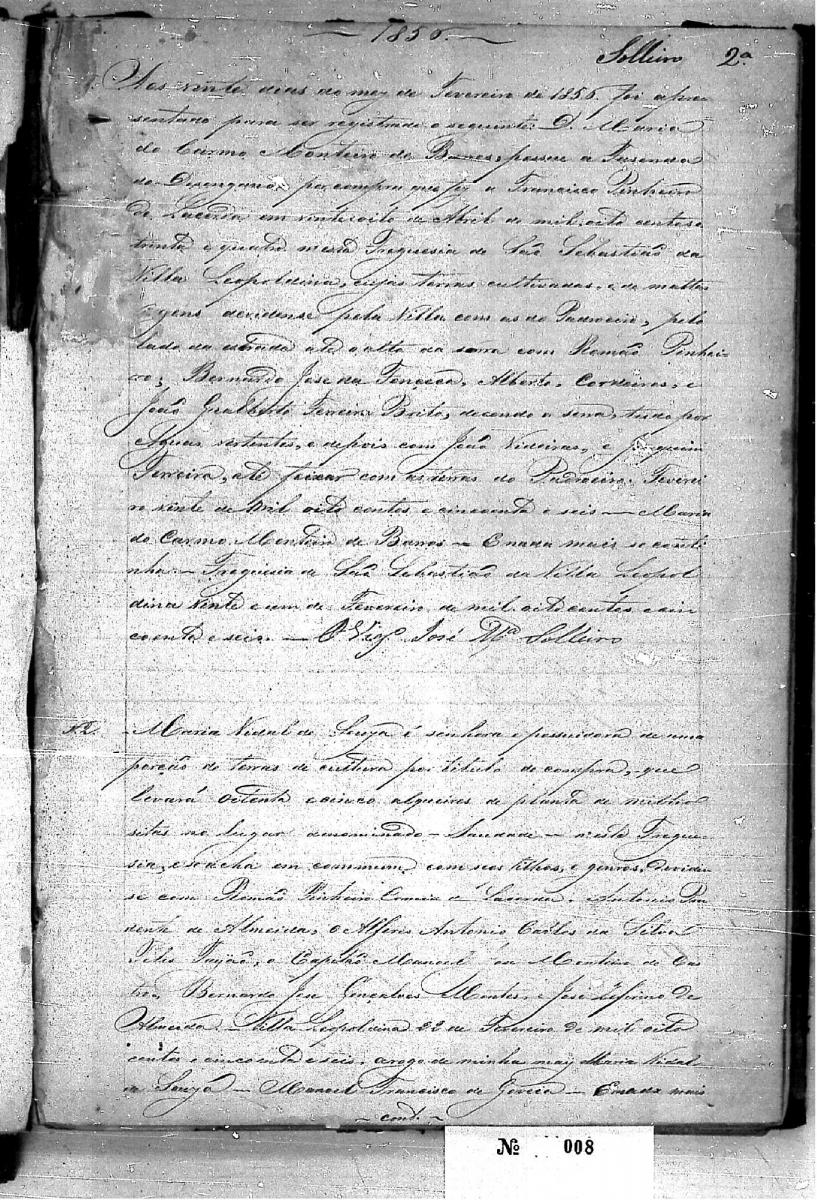 — 1856. —
Solleiro 2ª
Aos vinte dias do mez de Fevereiro de 1856. foi apre
sentado para ser registrado o seguinte. D. Maria
do Carmo Monteiro de Barros, possue a Fasenda
do Desengano, por compra que fez a Francisco Pinheiro
de Lacerda em vinte oito de Abril de mil oito centos e
trinta e quatro nesta Freguesia de São Sebastião da
Villa Leopoldina, cujas terras cultivadas, e de mattos
virgens devidense pela Villa com as do Padroeiro, pelo
lado da estrada até o alto da serra com Romão Pinhei
ro, Bernardo José da Fonseca, Alberto, Cordeiros, e
João Gualberto Ferreira Brito, decendo a serra, tudo por
Aguas vertentes, e depois com João Videiras, e Joaquim
Ferreira, até feixar com as terras do Padroeiro. Feverei
ro vinte de mil oito centos e cincoenta e seis — Maria
do Carmo Monteiro de Barros — E nada mais se conti
nha — Freguesia de São Sebastião da Villa Leopol
dina vinte e um de Fevereiro de mil oito centos e cin
coenta e seis. — O Vigº José Mª Solleiro
Maria Vidal de Souza é senhora e possuidora de uma
porção de terras de cultura por titulo de compra, que
levará oitenta e cinco alqueires de planta de milho
sitas no lugar denominado — Saudade — n'esta Fregue
sia, e se acha em commum com seos filhos, e genros, devide
se com Romão Pinheiro Correia de Lacerda, Antonio Pru
dente de Almeida, o Alferes Antonio Carlos da Silva
Telles Fayão, o Capitão Manoel José Monteiro de Cas
tro, Bernardo José Gonçalves Montes, e José Zeferino de
Almeida — Villa Leopoldina 22 de Fevereiro de mil oito
centos e cincoenta e seis, a rogo de minha may Maria Vidal
de Souza — Manoel Francisco de — E nada mais
— cont. —
Nº 008